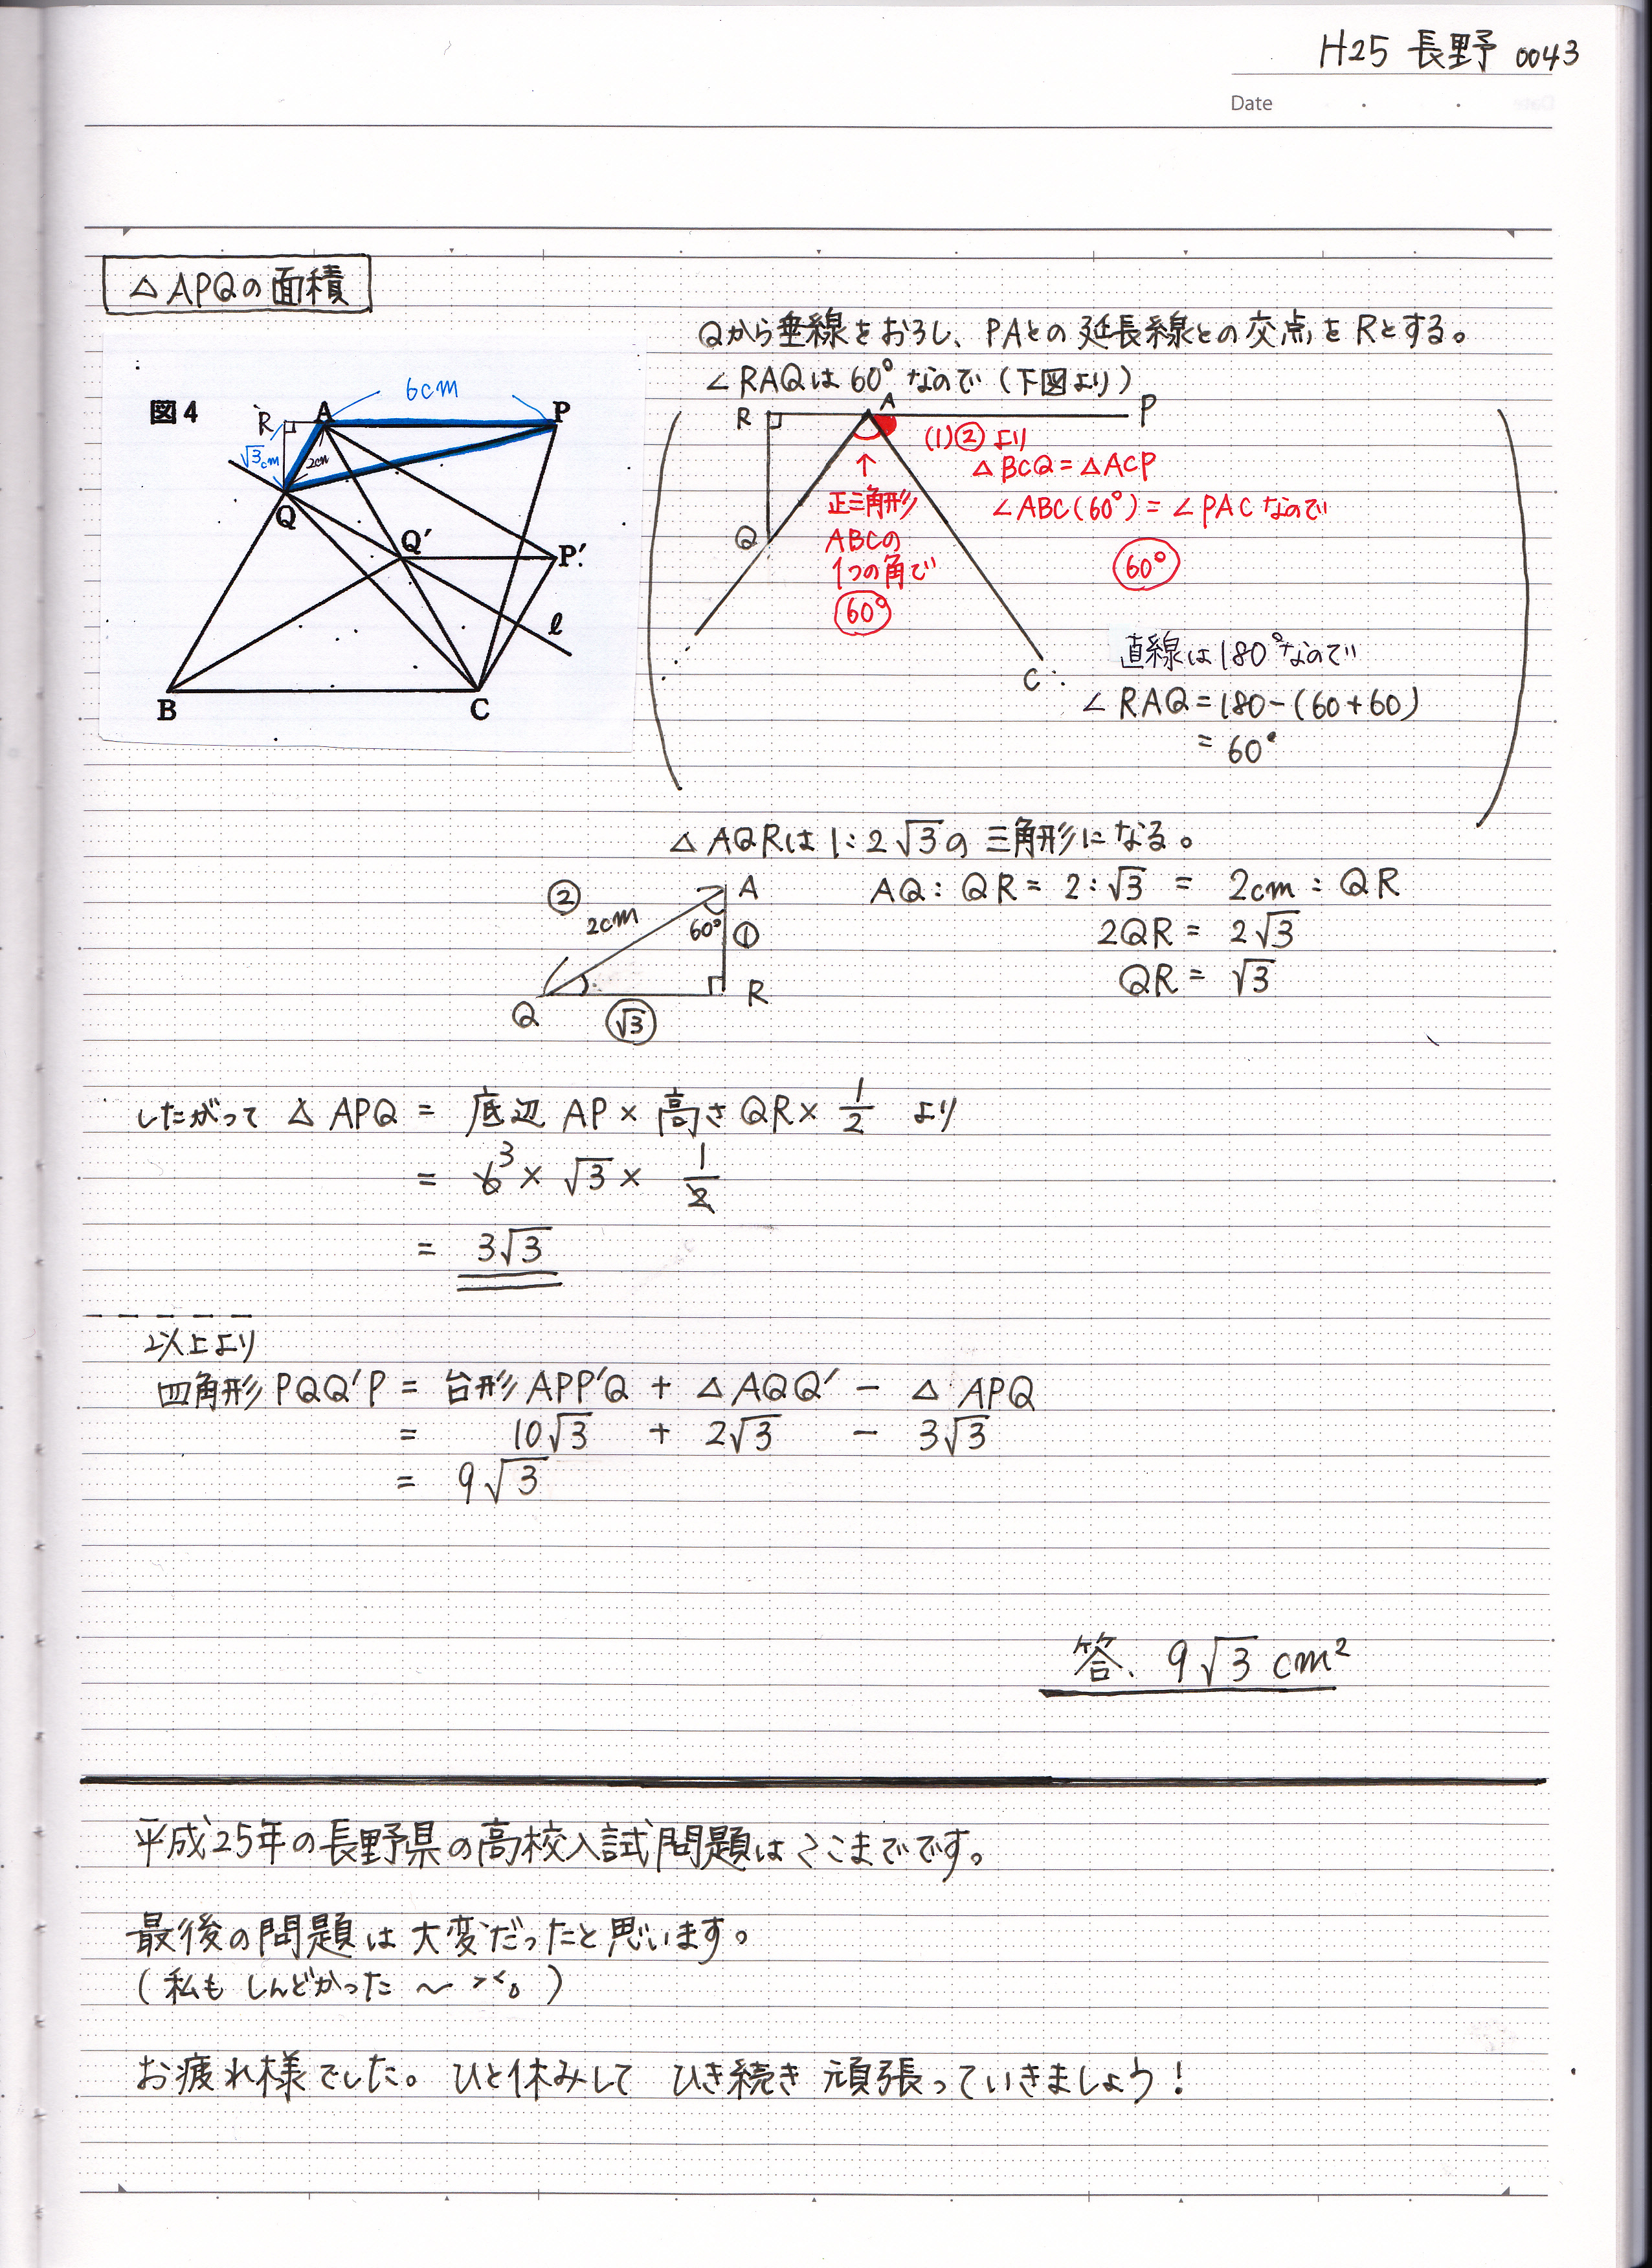 H25 長野 0043
Date
△APQの面積
Qから垂線をおろし、PAとの延長線との交点をRとする。
∠RAQは60°なので(下図より)
図4
6cm
R
A
P
√3cm
2cm
Q
Q′
P′
ℓ
B
C
R
A
P
Q
C
(1)②より
△BCQ=△ACP
∠ABC(60°)=∠PACなので
60°
↑
正三角形
ABCの
1つの角で
60°
直線は180°なので
∠RAQ=180-(60+60)
=60°
△AQRは1:2√3の三角形になる。
② 2cm A
60° ①
Q √3 R
AQ:QR=2:√3 = 2cm:QR
2QR = 2√3
QR = √3
したがって △APQ = 底辺AP×高さQR×1/2 より
= 6 3 × √3 × 1/2
= 3√3
以上より
四角形PQQ′P = 台形APP′Q + △AQQ′ - △APQ
= 10√3 + 2√3 - 3√3
= 9√3
答、9√3 cm²
平成25年の長野県の高校入試問題はここまでです。
最後の問題は大変だったと思います。
(私もしんどかった〜 >< 。)
お疲れ様でした。ひと休みして ひき続き 頑張っていきましょう!